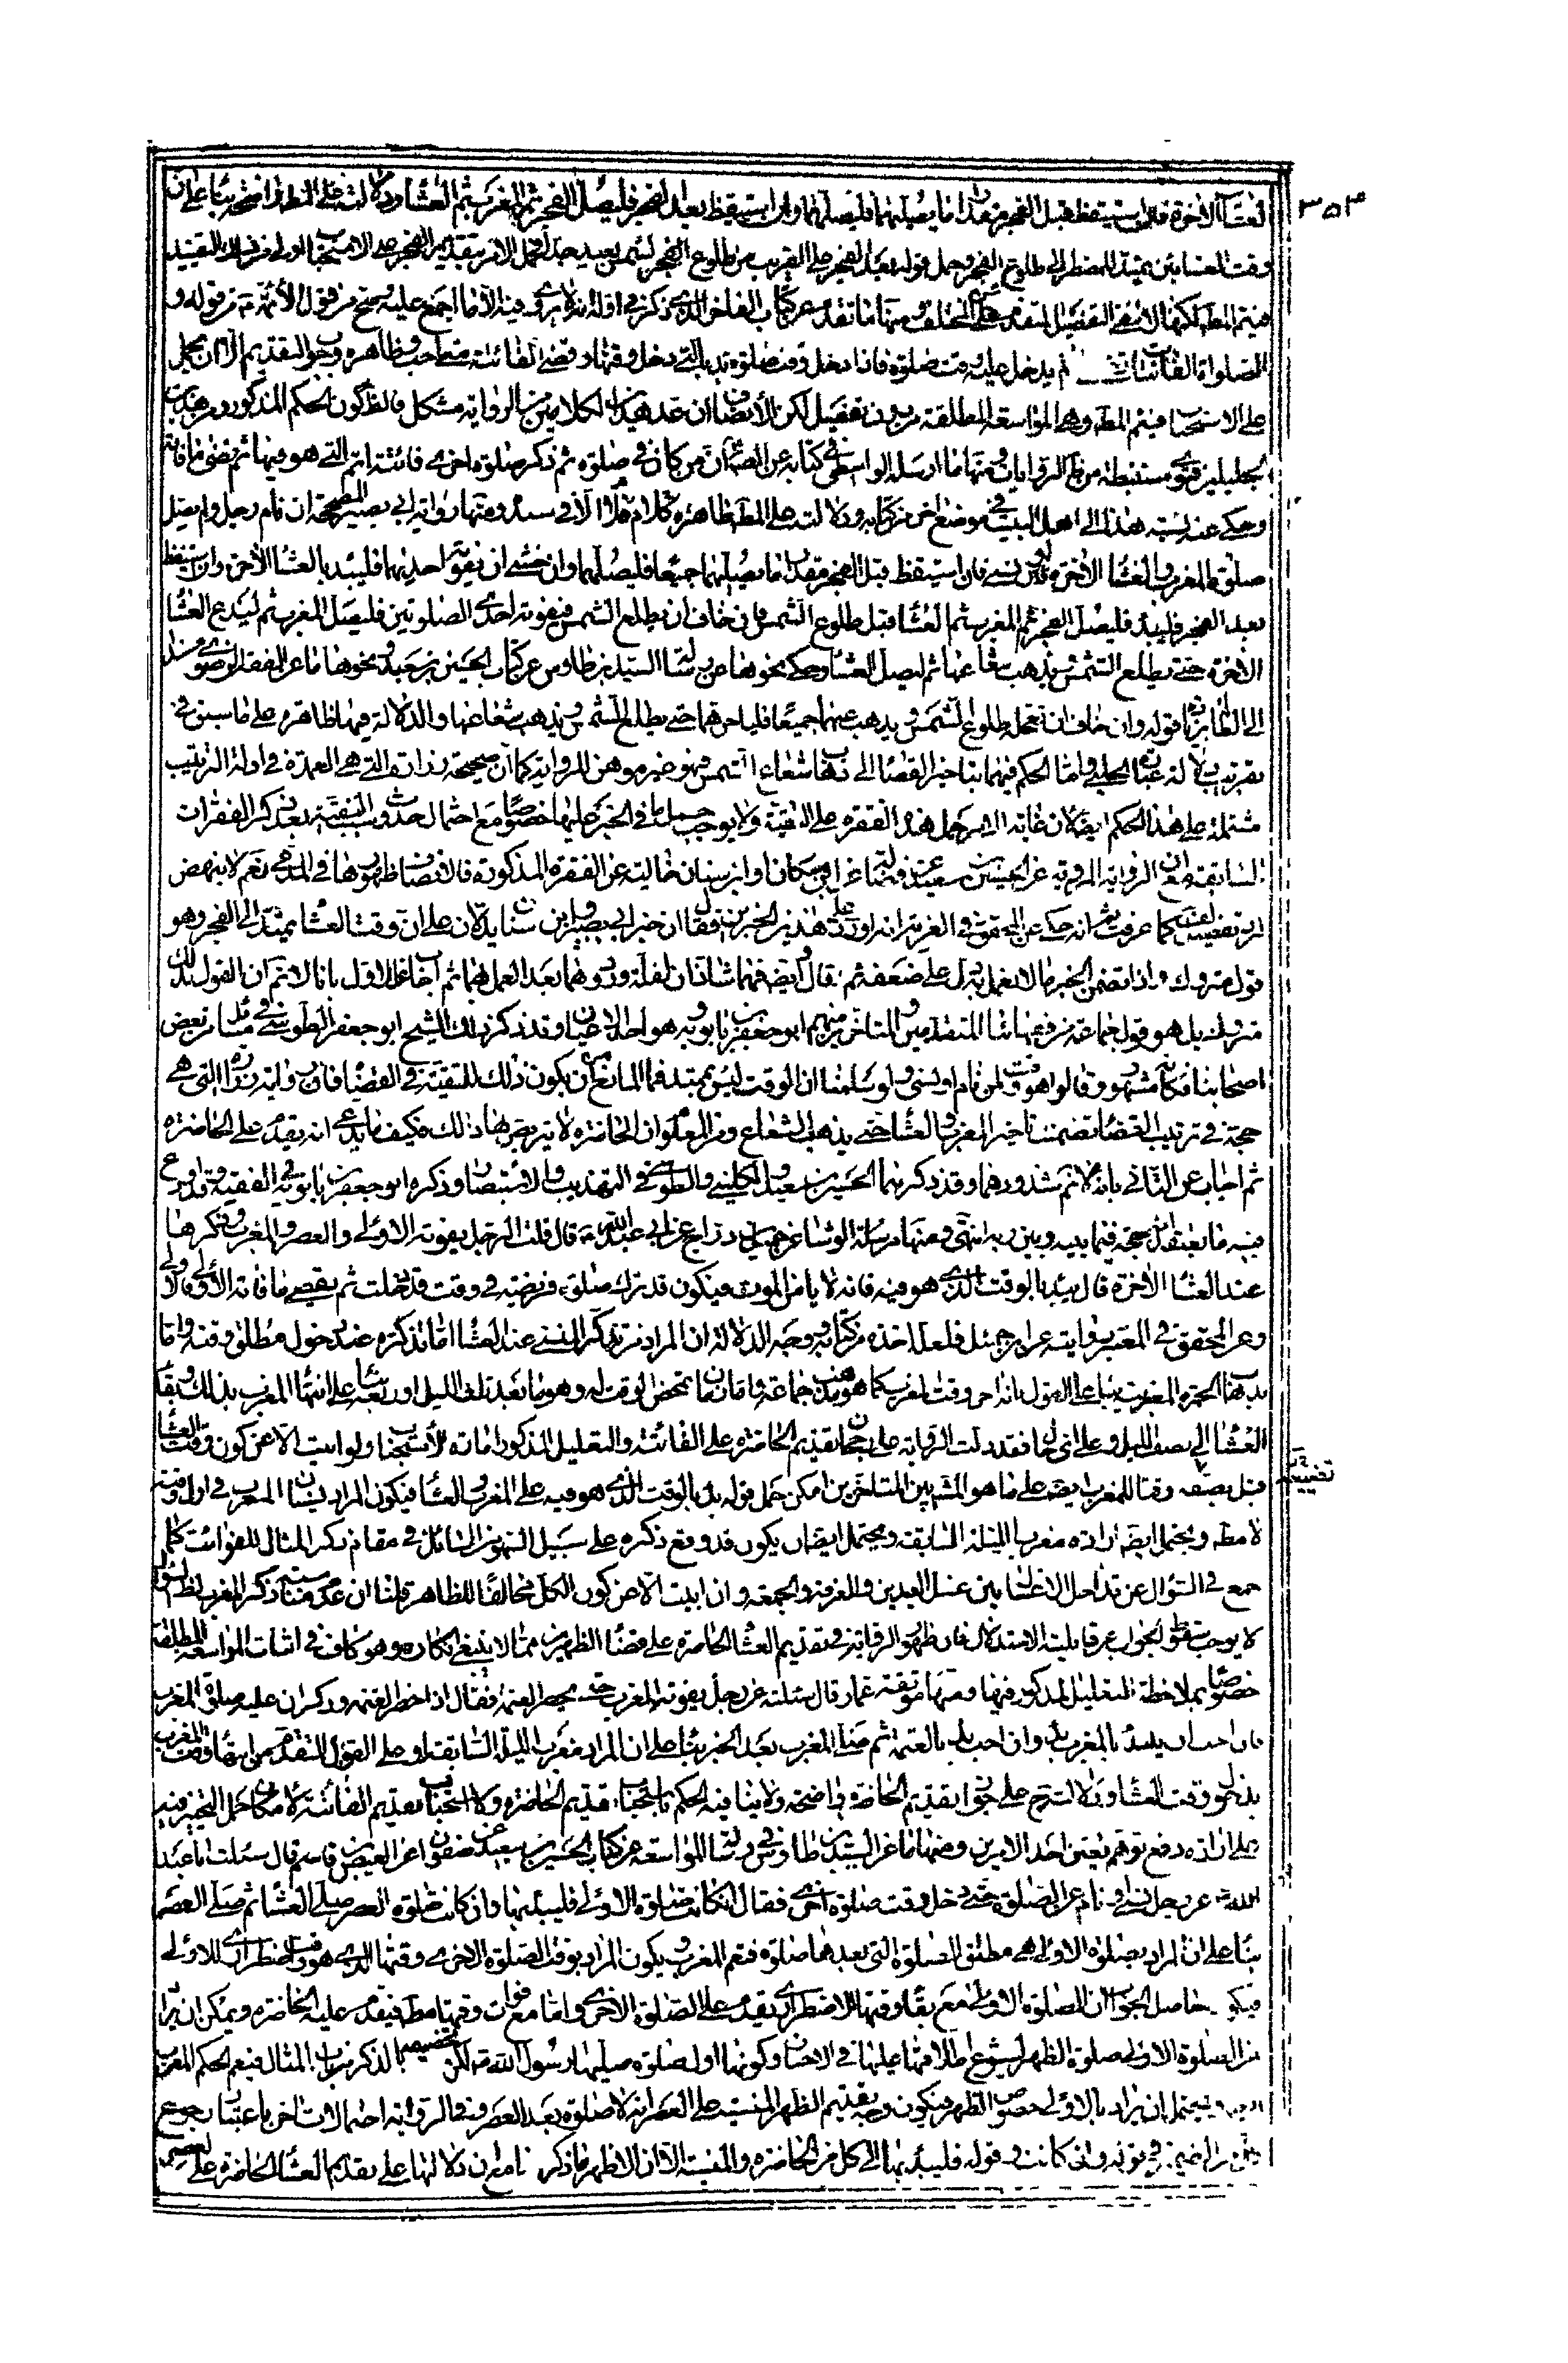 ٣٥٣
العشاء الآخرة فان استيقظ قبل الفجر بقدر ما يصليهما فليصلهما وان استيقظ بعد الفجر فليصل الفجر ثم المغرب ثم العشاء ودلالته على المط واضحة بناء على ان
وقت العشائين يمتد للمضطر الى طلوع الفجر وحمل قوله بعد الفجر على القريب من طلوع الشمس بعيد جدا وحمل الامر بتقديم الفجر على الاستحباب اولى من ذلك التقييد
فيتم المط لكنها لا تنفى التفصيل المتقدم عن المختلف ومنها ما تقدم عن كتاب الفاخر الذى ذكر فى اوله انه لا يروى فيه الا ما اجمع عليه وصح من قول الائمة ع من قوله و
الصلواة الفائتات تقضى ما لم يدخل عليه وقت صلوة فاذا دخل وقت صلوة بدء بالتى دخل وقتها وقضى الفائتة متى احب وظاهره وجوب التقديم الا ان يحمل
على الاستحباب فيتم المط وهى المواسعة المطلقة من دون تفصيل لكن الانصاف ان عد هذين الكلامين من الرواية مشكل فالظ كون الحكم المذكور من هذين
الجليلين فتوى مستنبطة من ظ الروايات ومنها ما ارسله الواسطى فى كتابه عن الص ع ان من كان فى صلوة ثم ذكر صلوة اخرى فائتة اتم التى هو فيها ثم يقضى ما فاته
وحكى عنه نسبة هذا الى اهل البيت فى موضع اخر من كتابه ودلالته على المط ظاهرة كلام الا فى سنده ومنها رواية ابى بصير المصححة ان نام رجل ولم يصل
صلوة المغرب والعشاء الآخرة او نسى فان استيقظ قبل الفجر بقدر ما يصليهما جميعا فليصلهما وان خشى ان يفوته احديهما فليبدء بالعشاء الآخرة وان استيقظ
بعد الفجر فليبدء فليصل الفجر ثم المغرب ثم العشاء قبل طلوع الشمس فان خاف ان يطلع الشمس فيفوته احدى الصلوتين فليصل المغرب ثم ليدع العشاء
الآخرة حتى يطلع الشمس ويذهب شعاعها ثم ليصل العشاء وحكى نحوها عن رسالة السيد بن طاوس عن كتاب الحسين بن سعيد ونحوها ما عن الفقه الرضوى بزيادة
قوله وان خاف ان تعجله طلوع الشمس ويذهب عنهما جميعا فليؤخرهما حتى يطلع الشمس ويذهب شعاعها والدلالة فيها ظاهرة على ما سبق فى
تقريب دلالة عبارة الحلبى واما الحكم فيهما بتاخير القضاء الى ذهاب شعاع الشمس فهو غير موهن للرواية كما ان صحيحة زرارة التى هى العمدة فى ادلة الترتيب
مشتملة على هذا الحكم ايضا لان غاية الامر حمل هذه الفقرة على التقية ولا يوجب حمل ما فى الخبر عليها خصوصا مع احتمال حدوث سبب التقية بعد ذكر الفقرات
السابقة مع ان الرواية المروية عن الحسين بن سعيد عن ابن مسكان او ابن سنان خالية عن الفقرة المذكورة فالانصاف ظهورها فى المدعى نعم لا ينهض
كما عرفت ثم انه حكى عن المحقق فى العزية انه اورد على هذين الخبرين فقال ان خبر ابى بصير وابن سنان يدلان على ان وقت العشاء يمتد الى الفجر وهو
قول متروك واذا تضمن الخبر ما لا يعمل به دل على ضعفه ثم قال ايضا فهما شاذان لقلة ورودهما بعد العمل بهما ثم اجاب عن الاول بانا لا نم ان القول بذلك
متروك بل هو قول جماعة من فقهائنا المتقدمين والمتاخرين منهم ابو جعفر بن بابويه هو احد الاعيان وقد ذكر ذلك الشيخ ابو جعفر الطوسى فى مسائل من بعض
اصحابنا فكانه مشهور وقالوا هو وقت لمن نام او نسى ولو سلمنا ان الوقت ليس بممتد فما المانع ان يكون ذلك للتقية فى القضاء فان رواية زرارة التى هى
حجة فى ترتيب القضاء تضمنت تاخير المغرب والعشاء حتى يذهب الشعاع ومن المعلوم ان الحاضرة لا يتربص بها ذلك فكيف ما يدعى انه يقدم على الحاضرة
ثم اجاب عن الثانى بانا لا نم شذوذهما وقد ذكرهما الحسين بن سعيد والكلينى والطوسى فى التهذيب والاستبصار وذكره ابو جعفر بن بابويه فى الفقيه وقد اودع
فيه ما يعتقد انه حجة فيما بينه وبين ربه انتهى ومنها مرسلة الوشاء عن جميل بن دراج عن ابى عبد الله ع قال قلت الرجل يفوته الاولى والعصر والمغرب ويذكرها
عند العشاء الآخرة قال يبدء بالوقت الذى هو فيه فانه لا يامن الموت فيكون قد ترك صلوة فريضة فى وقت قد دخلت ثم يقضى ما فاته الاولى فالاولى
وعن المحقق فى المعتبر روايته عن جميل فلعله اخذه من كتابه ووجه الدلالة ان المراد من تذكر المنسى عند العشاء اما تذكره عند دخول مطلق وقته واما
بذهاب الحمرة المغربية بناء على القول بانه اخر وقت المغرب كما هو مذهب جماعة واما زمان تمحض الوقت له وهو ما بعد ثلث الليل او ربعه بناء على انتهاء المغرب بذلك وبقاء
العشاء الى نصف الليل وعلى اى حال فقد دلت الرواية على رجحان تقديم الحاضرة على الفائتة والتعليل المذكور امارة الاستحباب ولو ابيت الا عن كون وقت العشاء
قبل نصفه وقتا للمغرب ايضا على ما هو المشهور بين المتاخرين امكن حمل قوله بدء بالوقت الذى هو فيه على المغرب والعشاء فيكون المراد نسيان المغرب فى اول وقته
لا مط ويحتمل ايضا ارادة مغرب الليلة السابقة ويحتمل ايضا ان يكون قد وقع ذكره على سبيل السهو من السائل فى مقام ذكر المثال للفوائت كما
جمع فى السؤال عن تداخل الاغسال بين غسل العيدين والعرفة والجمعة وان ابيت الا عن كون الكل مخالفا للظاهر قلنا ان عدم مناسبة ذكر المغرب لظ السؤال
لا يوجب سقوط الجواب عن قابلية الاستدلال فان ظهور الرواية فى تقديم العشاء الحاضرة على قضاء الظهرين مما لا ينبغى انكاره وهو كاف فى اثبات المواسعة المطلقة
خصوصا بملاحظة التعليل المذكور فيها ومنها موثقة عمار قال سئلته عن رجل يفوته المغرب حتى يحضر العتمة فقال اذا حضر العتمة وذكر ان عليه صلوة المغرب
فان احب ان يبدء بالمغرب بدء وان احب بدء بالعتمة ثم صلى المغرب بعد الخبر بناء على ان المراد مغرب الليلة السابقة او على القول المتقدم من انتهاء وقت المغرب
بدخول وقت العشاء ودلالته ح على جواز تقديم الحاضرة واضحة ولا ينافيه الحكم باستحباب تقديم الحاضرة ولا استحباب تقديم الفائتة لامكان حمل التخيير فيه
على ارادة دفع توهم تعين احد الامرين ومنها ما عن السيد بن طاوس فى رسالة المواسعة عن كتاب الحسين بن سعيد عن صفوان عن العيص بن قاسم قال سئلت ابا عبد
الله ع عن رجل نسى او نام عن الصلوة حتى دخل وقت صلوة اخرى فقال ان كانت صلوة الاولى فليبدء بها وان كانت صلوة العصر صلى العشاء ثم صلى العصر
بناء على ان المراد بصلوة الاولى هى مطلق الصلوة التى بعدها صلوة فتعم المغرب ويكون المراد بوقت الصلوة الاخرى وقتها الذى هو وقت اضطرارى للاولى
فيكون حاصل الجواب ان الصلوة الاولى مع بقاء وقتها الاضطرارى يقدم على الصلوة الاخرى واما مع فوات وقتها مط فيقدم عليه الحاضرة ويمكن ان يراد
من الصلوة الاولى صلوة الظهر لشيوع اطلاقها عليها فى الاخبار وكونها اول صلوة صليها رسول الله ص لكن تخصيصها بالذكر من باب المثال فيعم الحكم المغرب
ويحتمل ان يراد بالاولى خصوص الظهر فيكون وجه تقديم الظهر المنسية على العصر انه لا صلوة بعد العصر وفى الرواية احتمالات اخر باعتبار رجوع
الضمير فى قوله وان كانت وقوله فليبدء بها الى كل من الحاضرة والمنسية الا ان الاظهر ما ذكر من دلالتها على تقديم العشاء الحاضرة على العصر